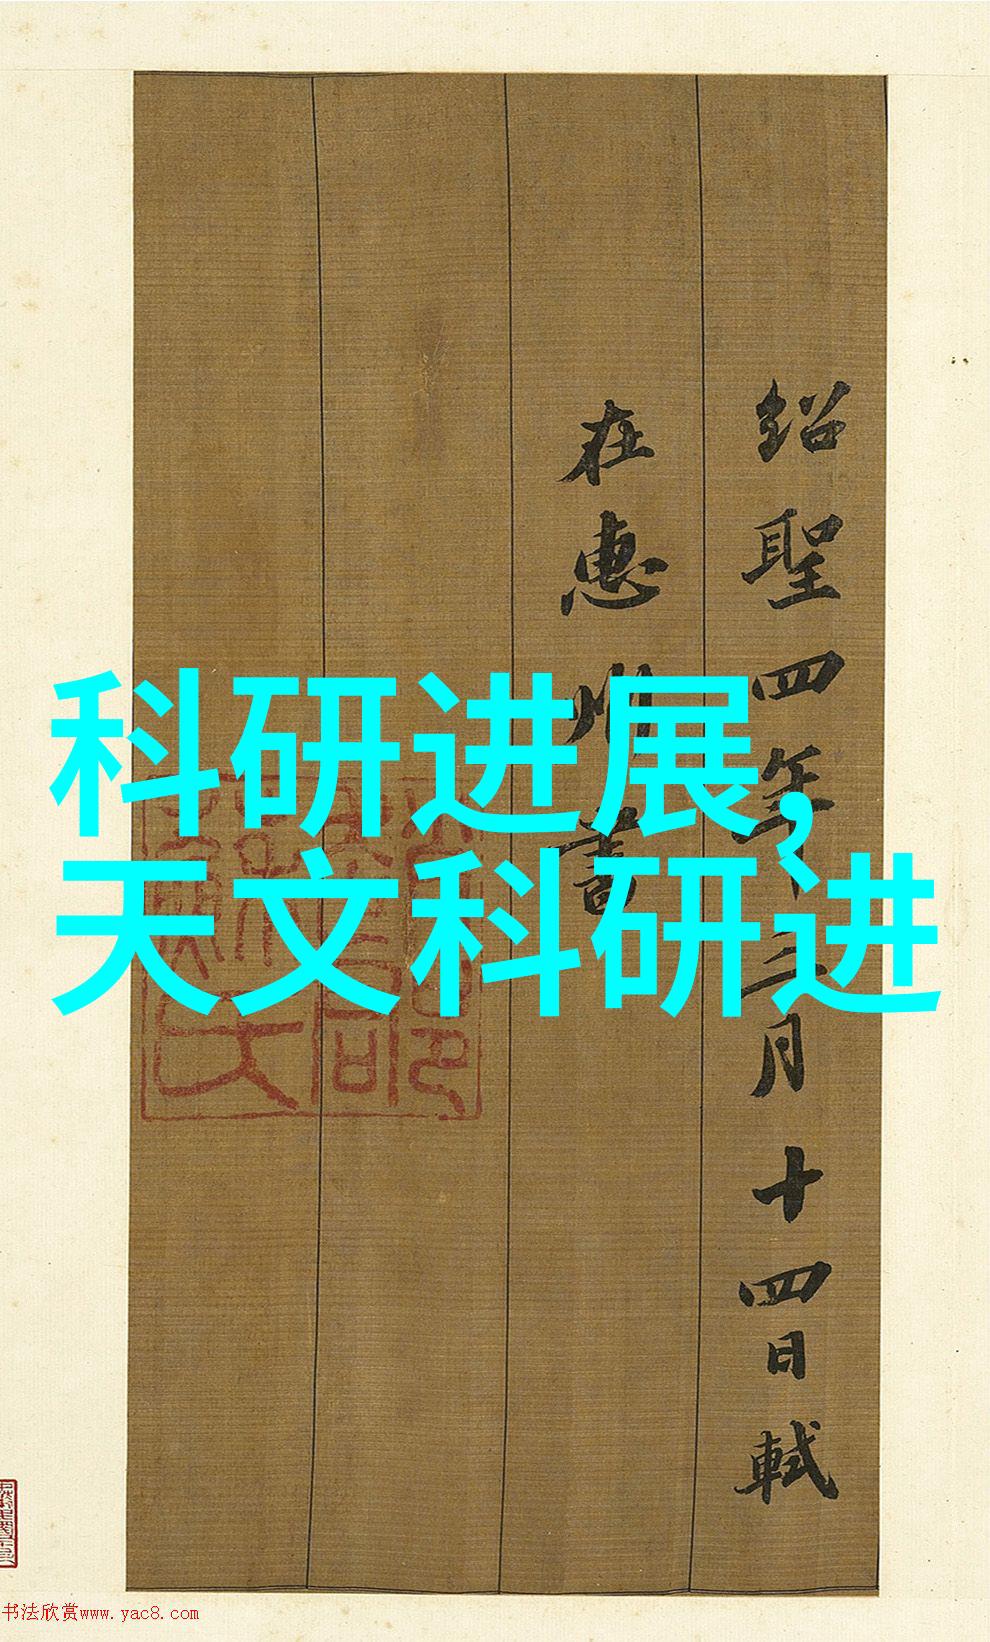 紹聖四年三月十四日軾
在惠州書
科研进展，
天文科研进
书法欣赏www.yac8.com